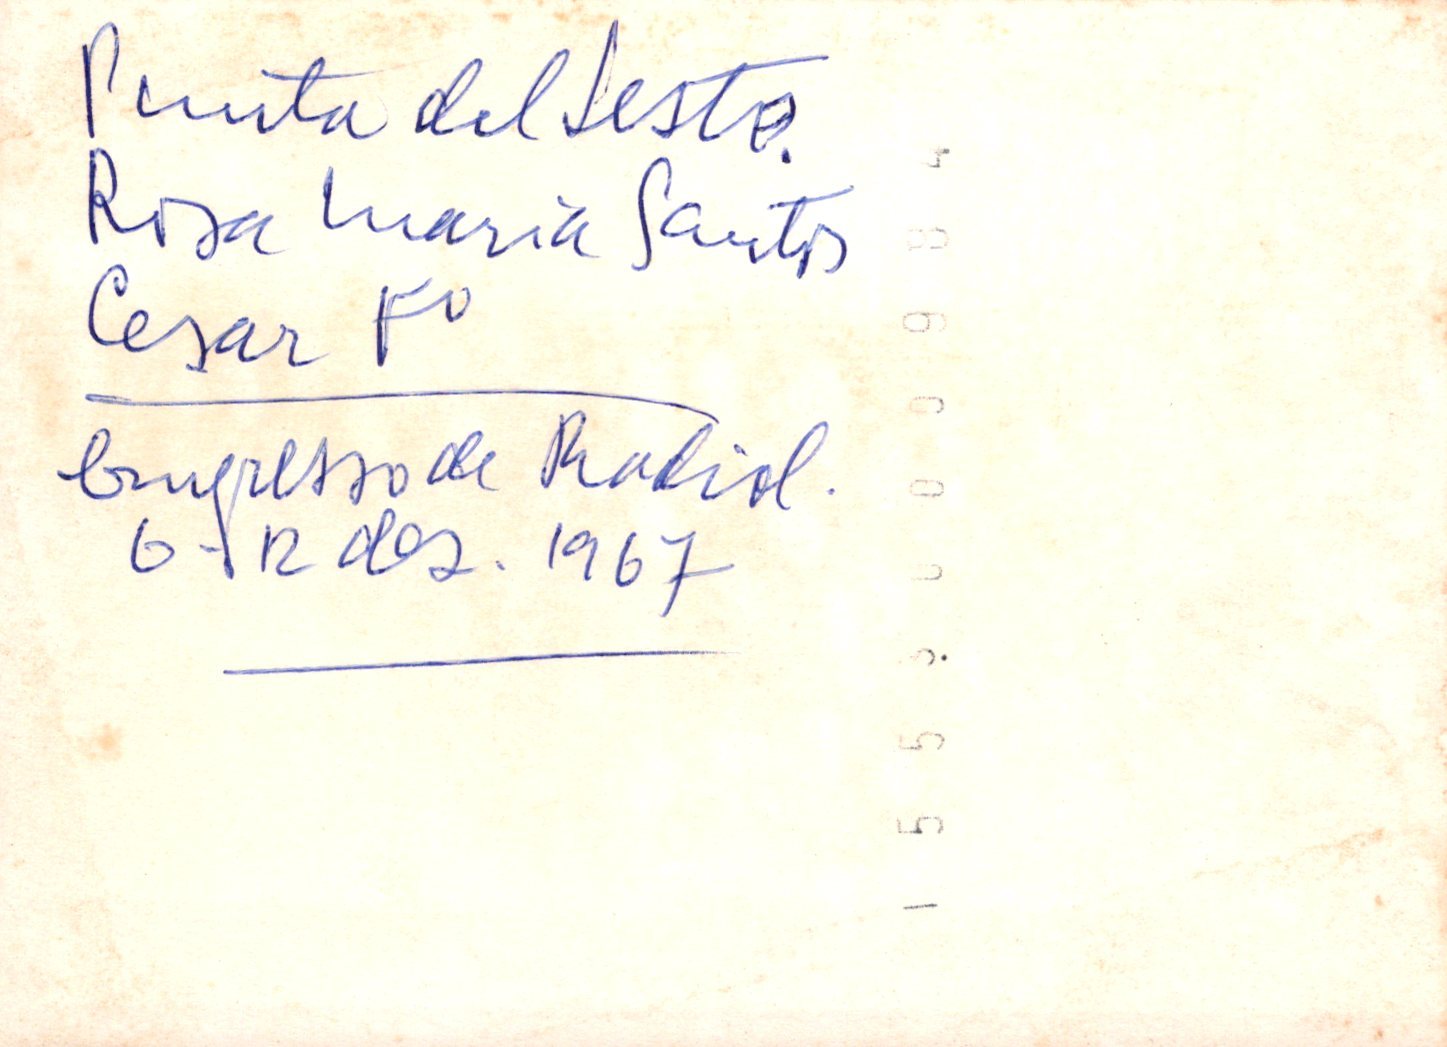 Punta del Leste.
Rosa Maria Santos
Cesar Fº
Congresso de Radiol.
6-12 dez. 1967